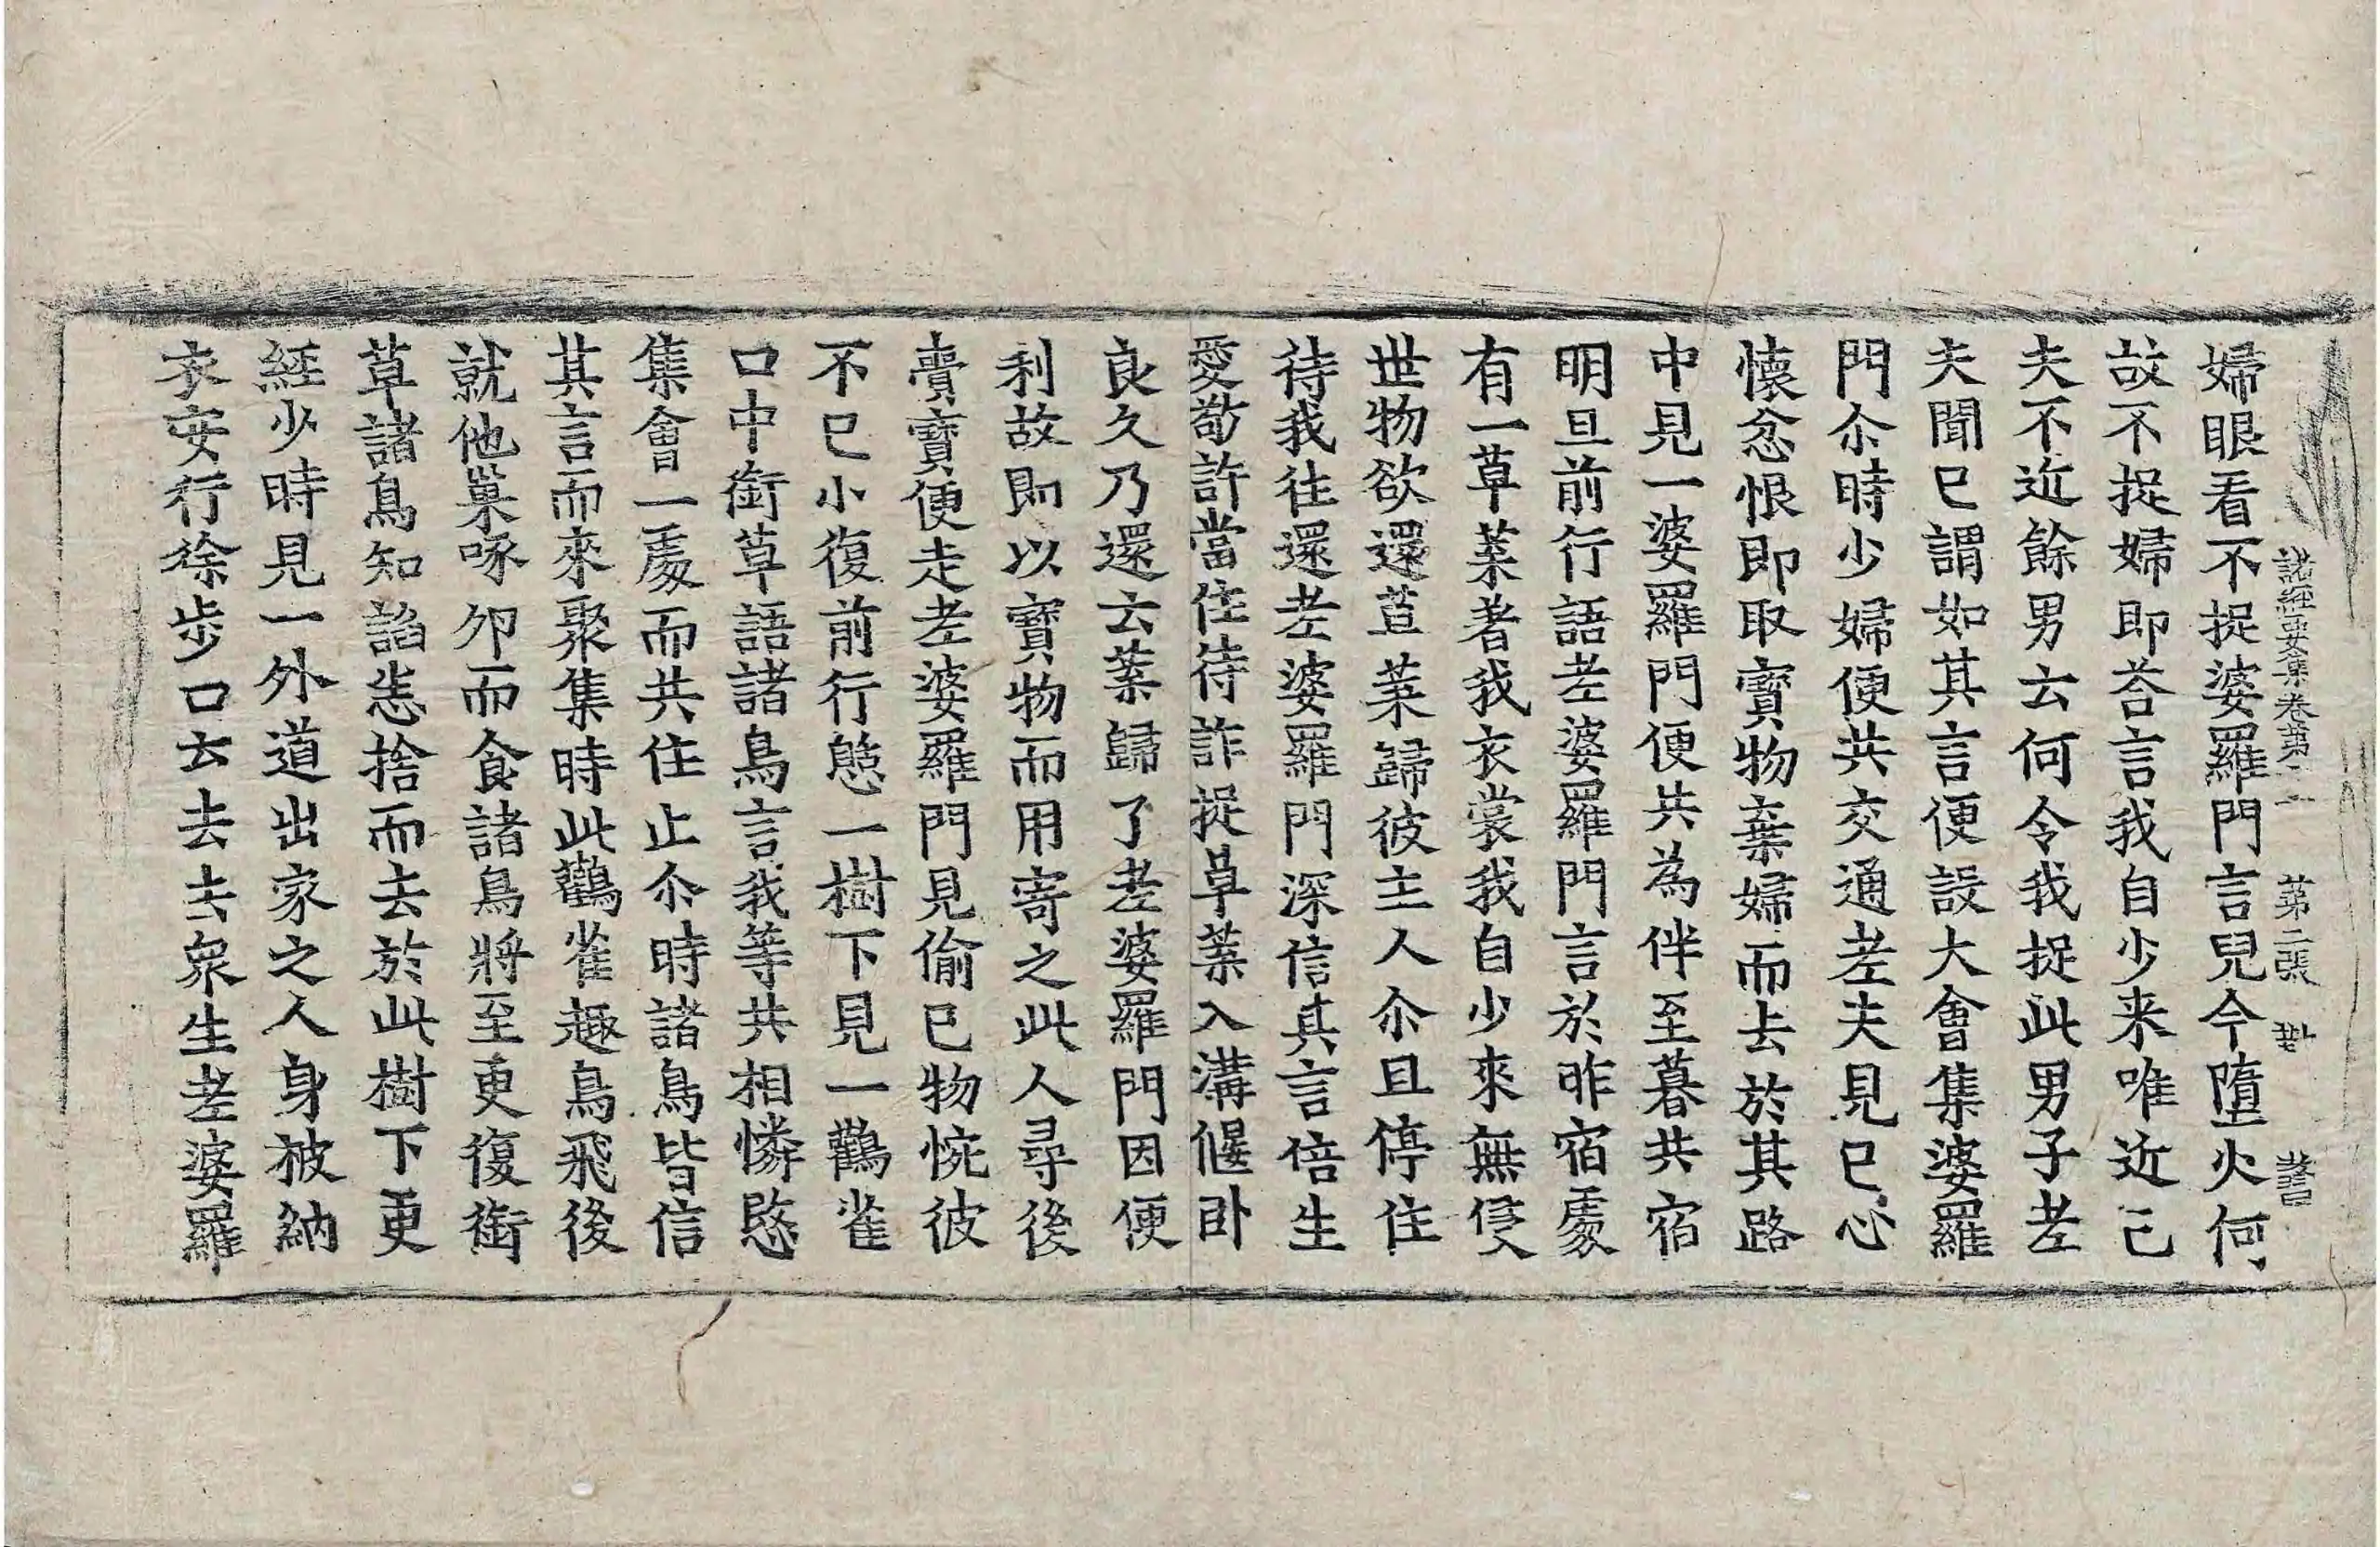 諸經要集卷第二 第二張 對
婦眼看不捉婆羅門言兒今墮火何
故不捉婦即荅言我自少来唯近己
夫不近餘男云何令我捉此男子老
夫聞已謂如其言便設大會集婆羅
門尒時少婦便共交通老夫見已心
懷忿恨即取寶物棄婦而去於其路
中見一婆羅門便共為伴至暮共宿
明旦前行語老婆羅門言於昨宿處
有一草葉著我衣裳我自少來無侵
世物欲還草葉歸彼主人尒且停住
待我往還老婆羅門深信其言倍生
愛敬許當住待詐捉草葉入溝偃卧
良久乃還云葉歸了老婆羅門因便
利故即以寶物而用寄之此人尋後
賷寶便走老婆羅門見偷已物惋彼
不已小復前行憩一樹下見一鸛雀
口中銜草語諸鳥言我等共相憐愍
集會一處而共住止尒時諸鳥皆信
其言而來聚集時此鸛雀趣鳥飛後
就他巢啄卵而食諸鳥將至更復銜
草諸鳥知諂恚捨而去於此樹下更
經少時見一外道出家之人身被納
衣安行徐步口云去去衆生老婆羅